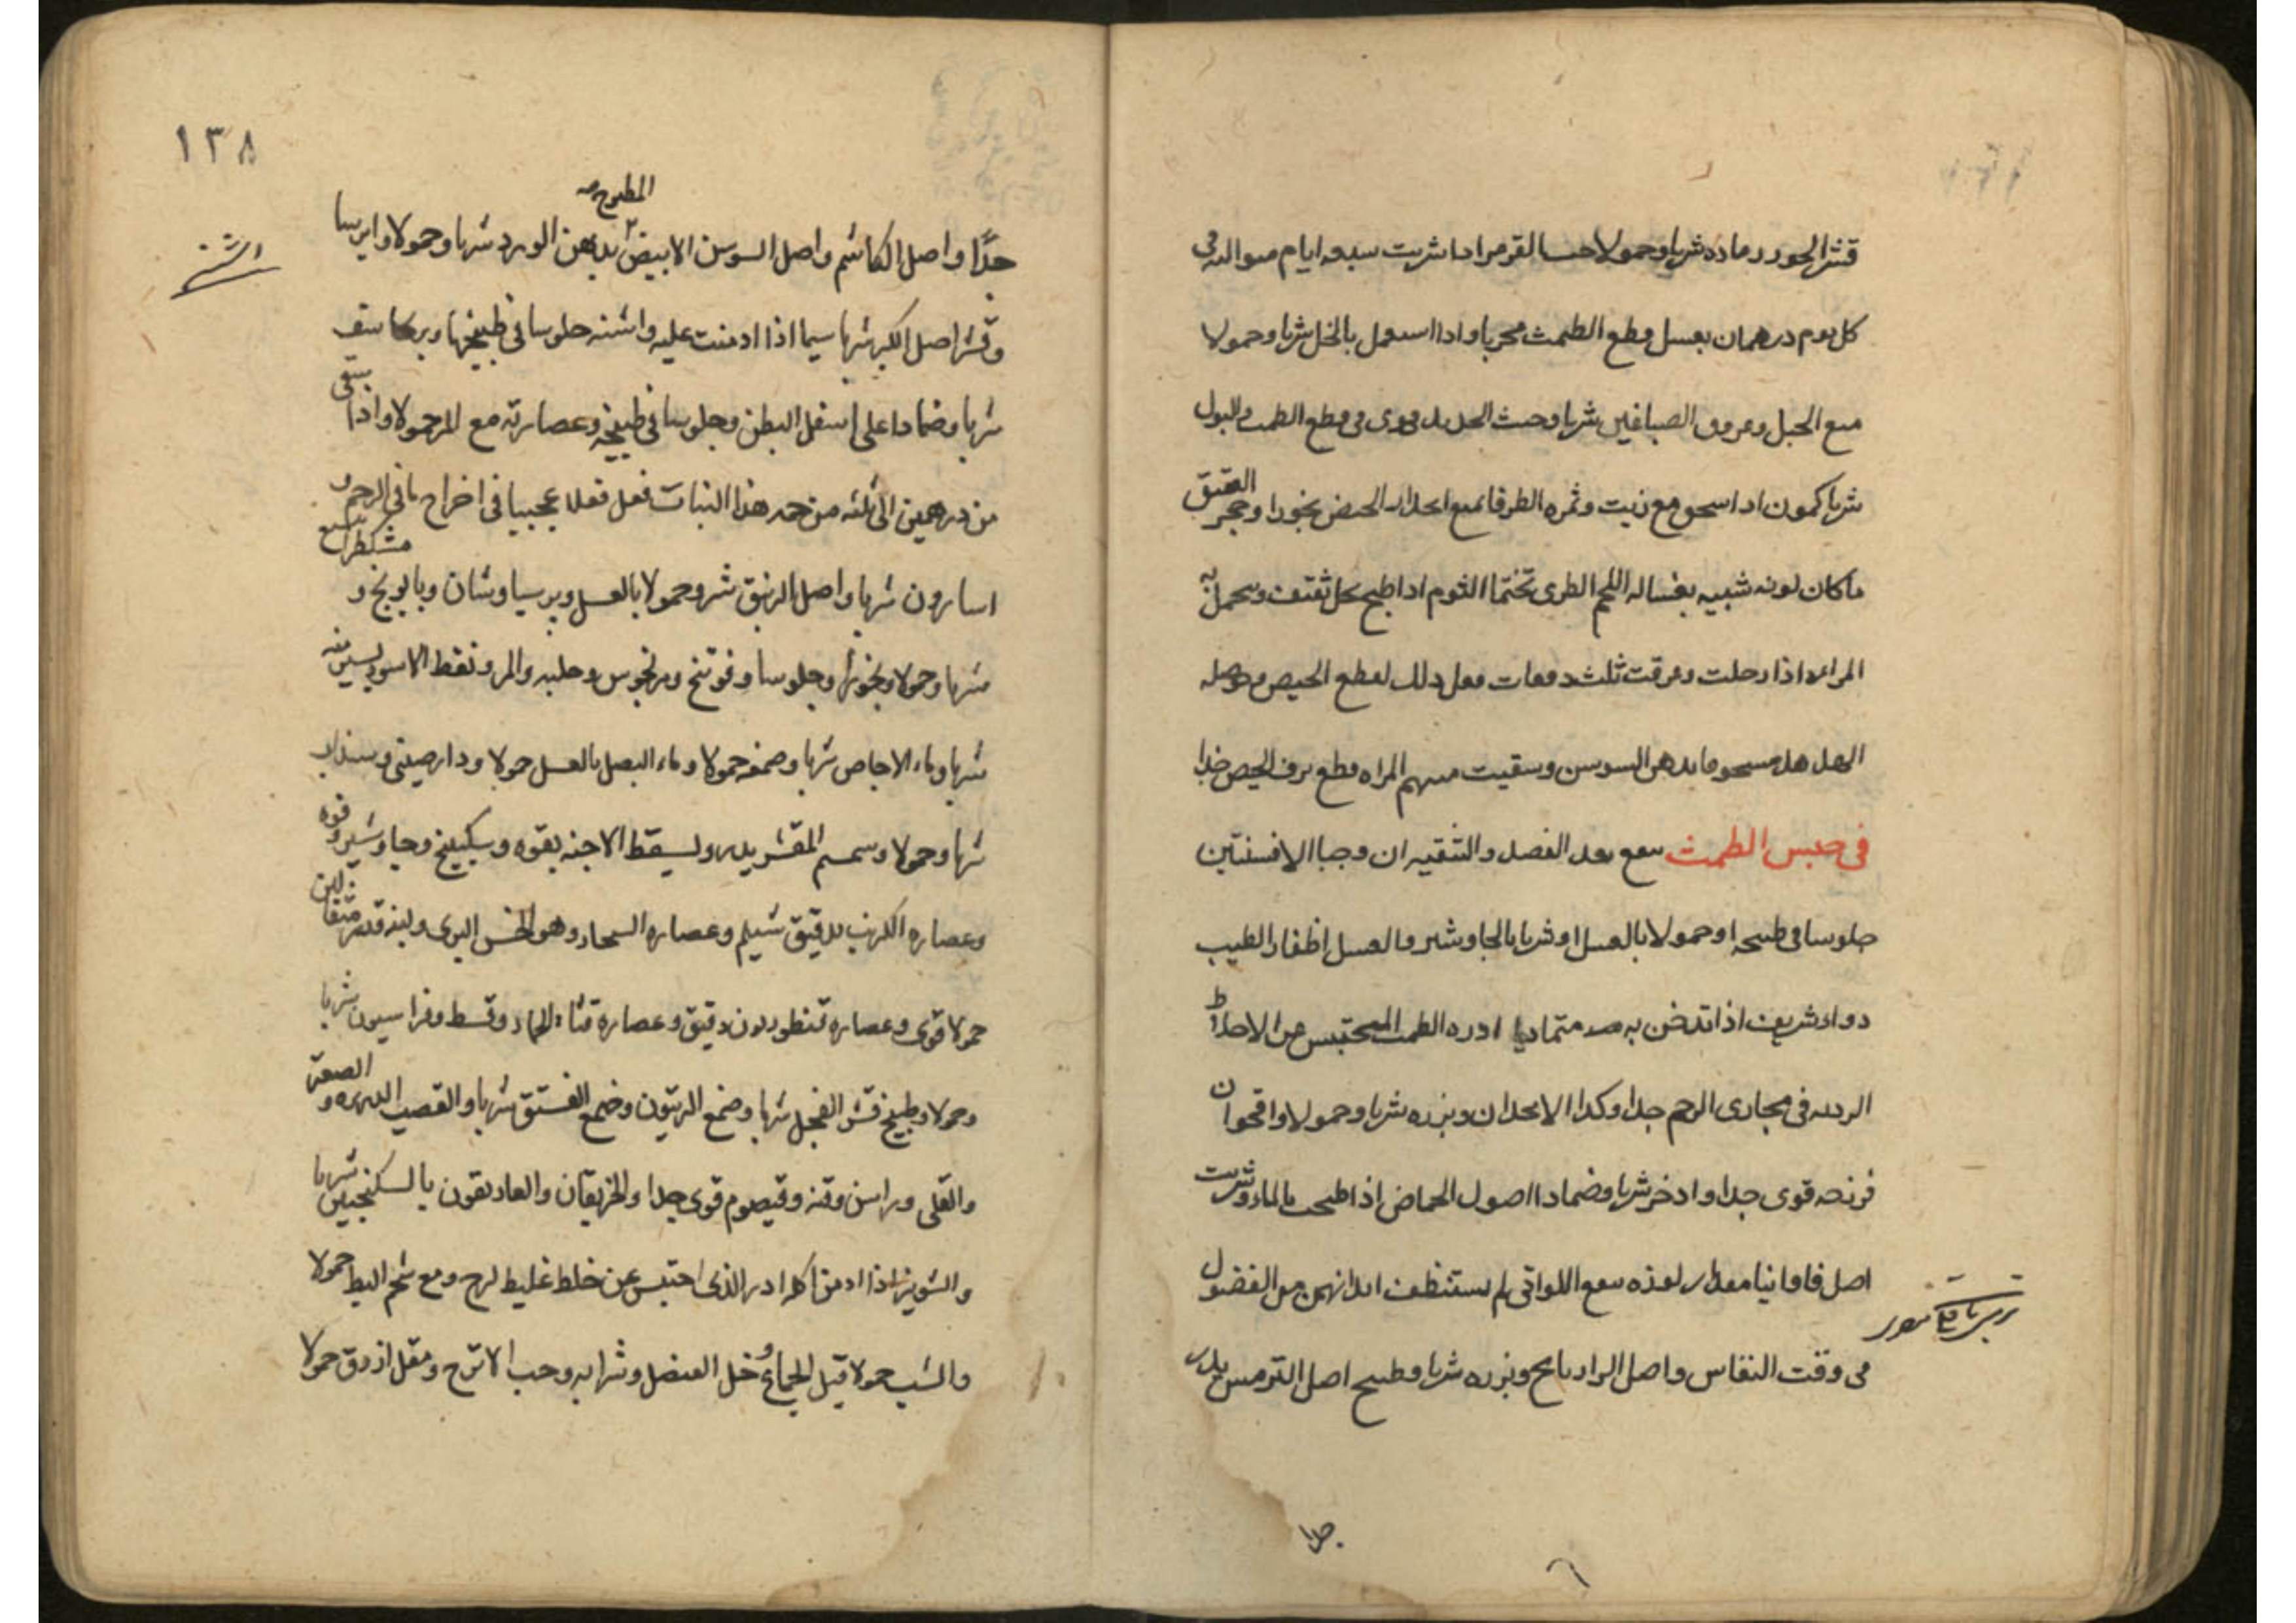 قشر الحور رماده شربا وحمولا حب القرمرادا شربت سبعه ايام متواليه فى
كل يوم درهمان بعسل قطع الطمث مجربا واذا استعمل بالخل شربا وحمولا
منع الحبل وعروق الصباغين شربا وخبث الحديد قوى فى قطع الطمث والبول
شربا كمون اذا سحق مع زيت وثمره الطرفا تمنع انحدار الحيض بخورا وحجر العقيق
ما كان لونه شبيه بغساله اللحم الطرى تختما الثوم اذا طبخ بخل ثقيف وتحمل به
المراه اذا دخلت وعرقت ثلث دفعات فعل ذلك لقطع الحيض
مسحوقا بدهن السوسن وسقيت منه المراه قطع نزف الحيض جدا
فى حبس الطمث ينفع بعد الفصد والتنقيه ان وجبا الافسنتين
جلوسا فى طبيخه او حمولا بالعسل او شربا بالجاوشير والعسل اظفار الطيب
دواء شريف اذا تدخن به متماديا ادره الطمث المحتبس عن الاخلاط
الرديه فى مجارى الرحم جدا وكذا الانجدان وبزره شربا وحمولا واقحوان
فرزجه قوى جدا واذخر شربا وضمادا اصول الحماض اذا طبخت بالماء وشربت
اصل فاوانيا مقدار لوزه ينفع اللواتى لم يستنظف ابدانهن من الفضول
فى وقت النفاس واصل الرازيانج وبزره شربا وطبيخ اصل الترمس يدر
جدا
١٣٨
المطبوخ
جدًا واصل الكاشم واصل السوسن الابيض بدهن الورد شربا وحمولا وايرسا
اشنه
وقشر اصل الكبر شربا سيما اذا ادمنت عليه واشنه جلوسا فى طبيخها وبرنجاسف
شربا وضمادا على اسفل البطن وجلوسا فى طبيخه وعصارته مع المر حمولا واذا سقى
من درهمين الى ثلثه من هذا النبات فعل فعلا عجيبا فى اخراج ما فى الرحم و
اسارون شربا واصل الزنبق شربا وحمولا بالعسل وبرسياوشان وبابونج و مشكطرامشيع
شربا وحمولا وبخورا وجلوسا وفوتنج ومرنجوس وحلبه والمر ونفط الاسود
شربا وماء الاجاص شربا وصمغه حمولا وماء البصل بالعسل حمولا ودارصينى وسذاب
شربا وحمولا وسمسم المقشر يدر ويسقط الاجنه بقوه وسكبينج وجاوشير وفوه
وعصاره الكرنب بدقيق شيلم وعصاره وهو الخس البرى ولبنه قدر مثقالين
حمولا قوى وعصاره قنطوريون دقيق وعصارة قثاء الحمار وقسط وفراسيون شربا
وحمولا وطبيخ قشر الفجل شربا وصمغ الزيتون وصمغ الفستق شربا والقصب الذريره و الصعتر
والقلى وراسن وقنه وقيصوم قوى جدا والخربقان والغاريقون بالسكنجبين شربا
والشونيز اذا ادمن اكله ادر الذى احتبس عن خلط غليظ لزج ومع شحم البط حمولا
والشب حمولا قبل الجماع و خل العنصل وشرابه وحب الاترج ومقل ازرق حمولا